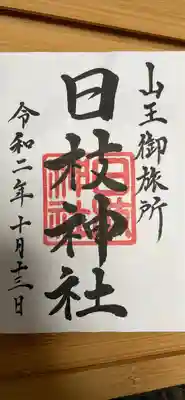 山王御旅所
日枝神社
令和二年十月十三日